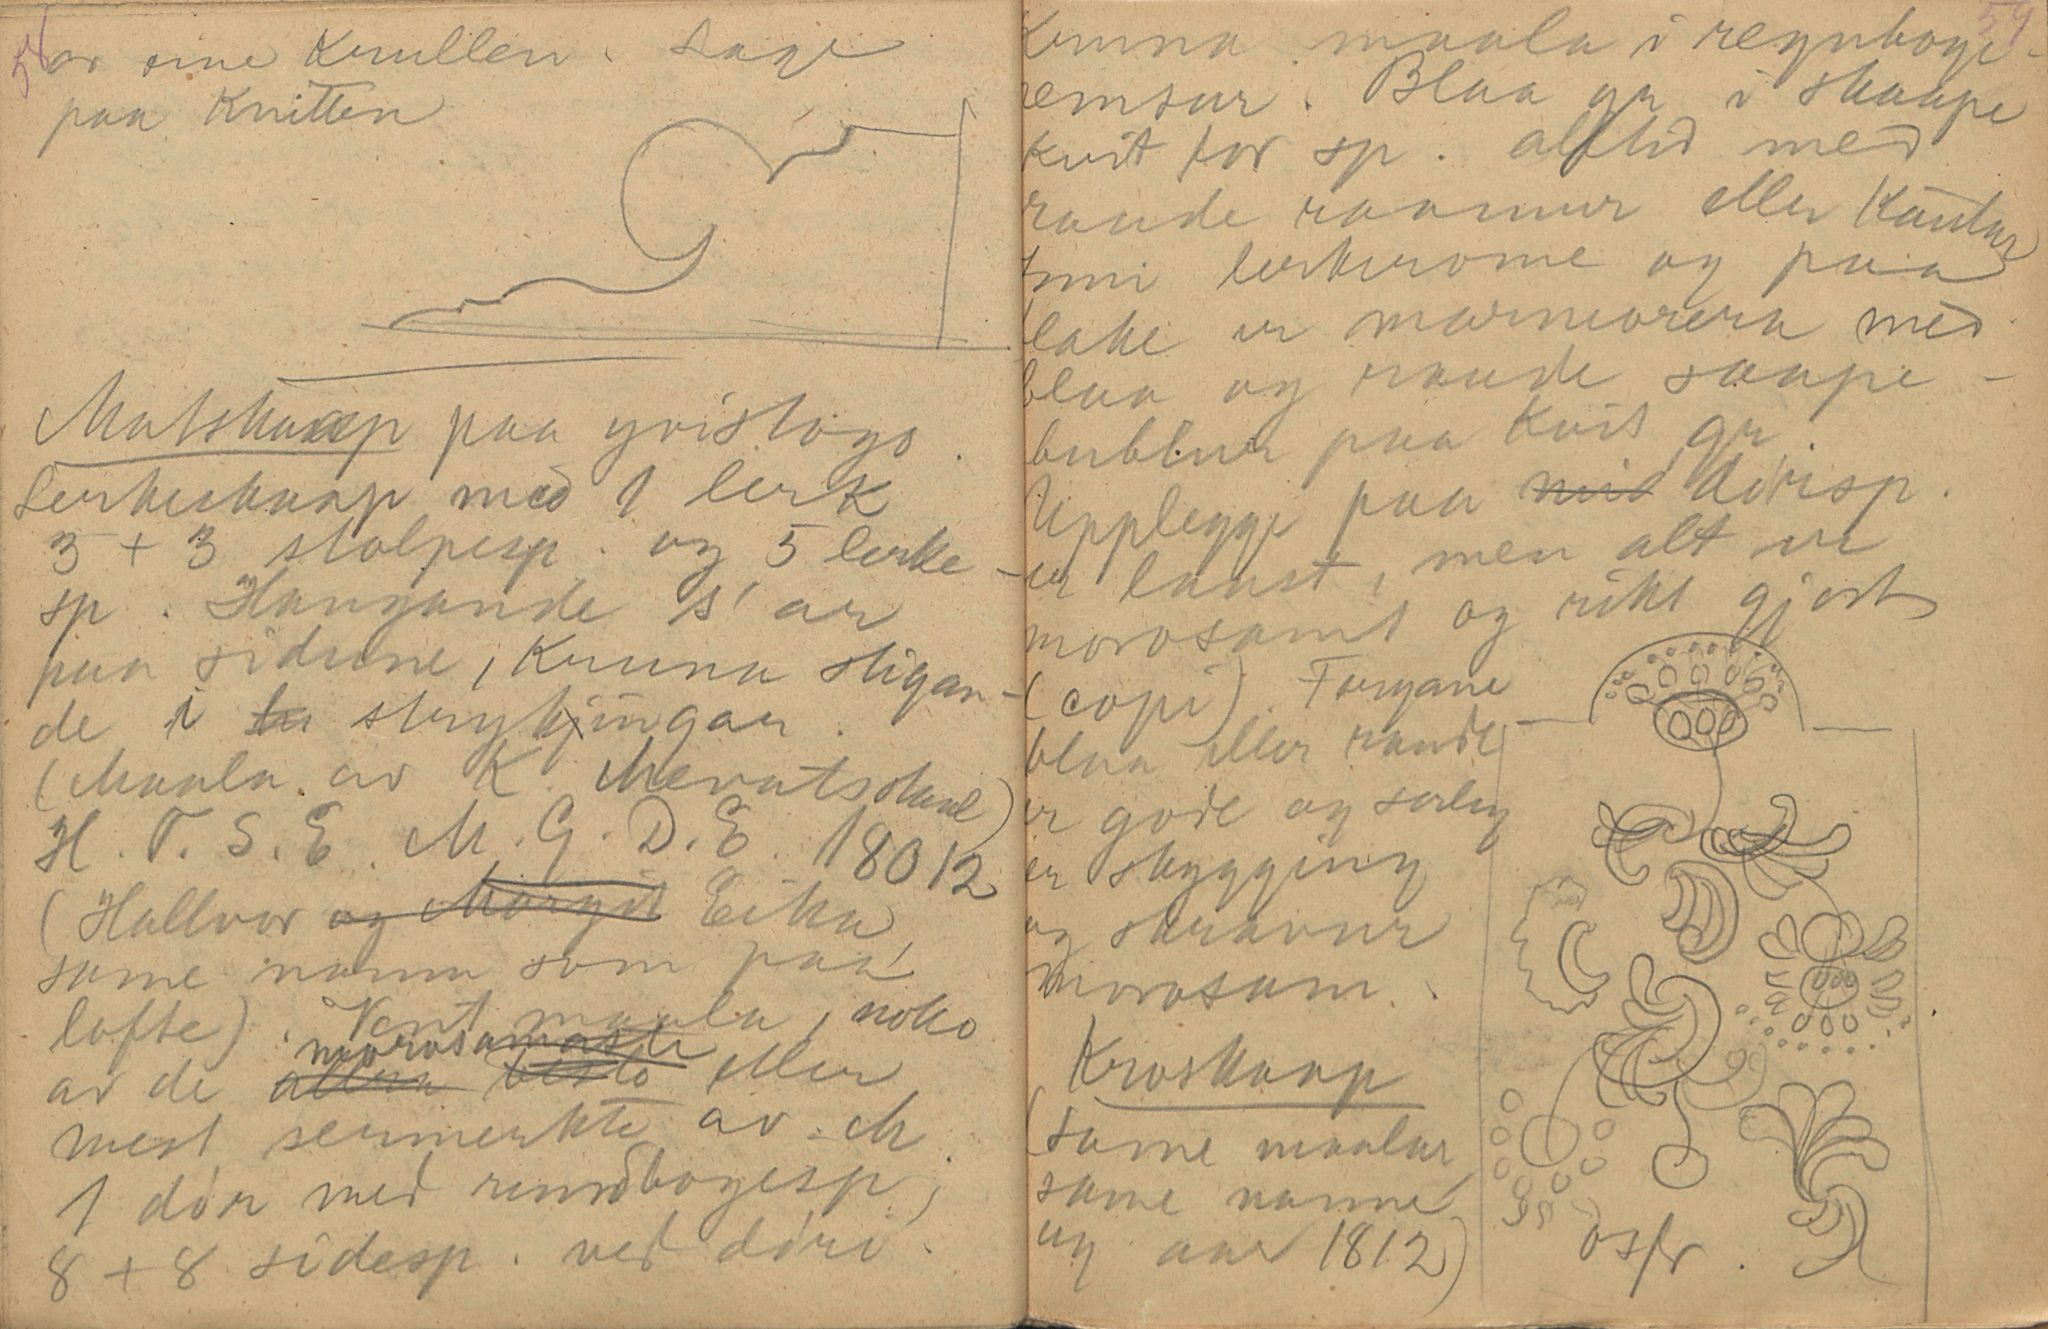 56
av eine Krullen. Lage
paa Knitten
Matskaap paa yvistogo.
Lerkeskaap med 1 lerk
3 + 3 stolpesp. og 5 lerke-
sp. Hangande s'ar
paa sidune, Kruna stigan-
de i to strykjingar.
(Maala av K.
H. T. S. E. M. G. D. E. 18012
(Hallvor og Margit Eika,
same namn som paa
lofte). Vent maala, noko
av de morosamaste
allra beste eller
mest sermerkte av M.
1 dør med rundbogesp,
8 + 8 sidesp. ved døri.
57
Kruna maala i regnboge-
remsur. Blaa gr i skaape
kvit for sp. altid med
raude raamur eller Kantar
Inni lerkerome og paa
take er marmorera med
blaa og raude saape-
bublur paa Kvit gr.
Upplegge paa mid dørsp.
er laust, men alt er
morosamt og rikt gjort
(copi). Fargane
blaa eller raude
er gode og serleg
er skygging
og skravur
morosam.
Kroskaap
(same maalar,
same namne
og aar 1812)
osfr.